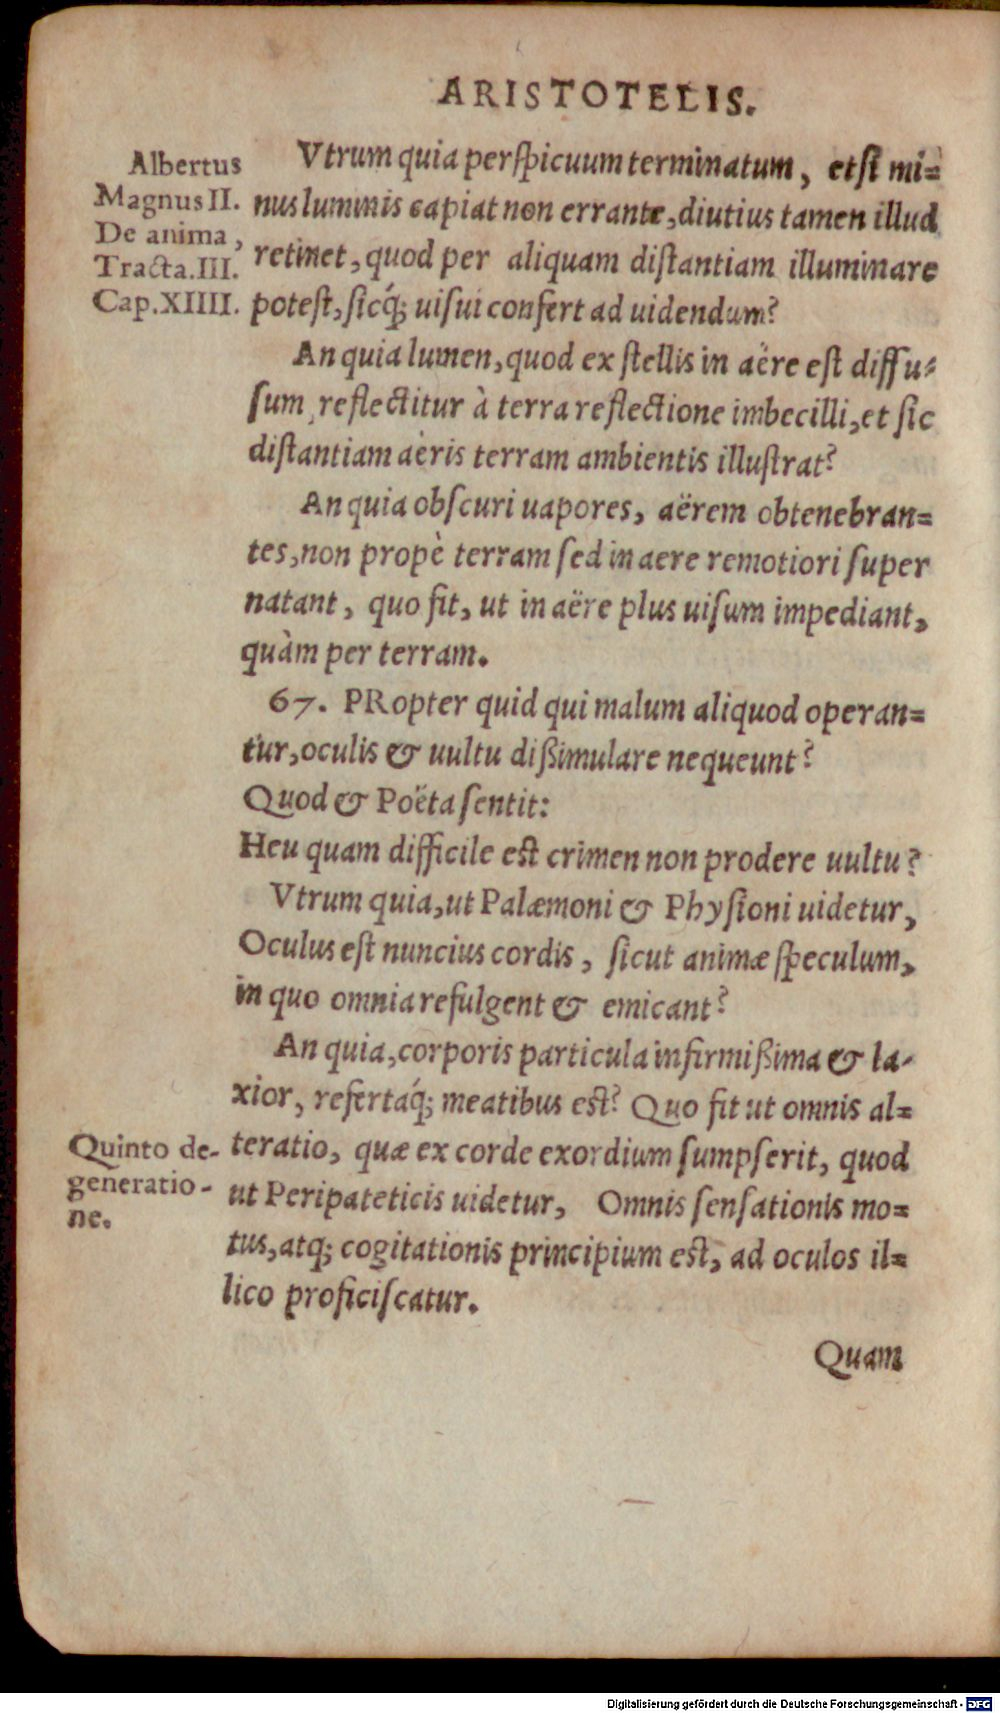 ARISTOTELIS.
Albertus
Magnus II.
De anima,
Tracta. III.
Cap. XIIII.
Vtrum quia perspicuum terminatum, etsi mi=
nus luminis capiat non errante, diutius tamen illud
retinet, quod per aliquam distantiam illuminare
potest, sicq́; uisui confert ad uidendum?
An quia lumen, quod ex stellis in aëre est diffu=
sum, reflectitur à terra reflectione imbecilli, et sic
distantiam aëris terram ambientis illustrat?
An quia obscuri uapores, aërem obtenebran=
tes, non propè terram sed in aere remotiori super
natant, quo fit, ut in aëre plus uisum impediant,
quàm per terram.
67. PRopter quid qui malum aliquod operan=
tur, oculis & uultu dißimulare nequeunt?
Quod & Poëta sentit:
Heu quam difficile est crimen non prodere uultu?
Vtrum quia, ut Palæmoni & Physioni uidetur,
Oculus est nuncius cordis, sicut animæ speculum,
in quo omnia refulgent & emicant?
An quia, corporis particula infirmißima & la-
xior, refertaq́; meatibus est? Quo fit ut omnis al=
teratio, quæ ex corde exordium sumpserit, quod
ut Peripateticis uidetur, Omnis sensationis mo=
tus, atq; cogitationis principium est, ad oculos il=
lico proficiscatur.
Quinto de-
generatio-
ne.
Quam
Digitalisierung gefördert durch die Deutsche Forschungsgemeinschaft - DFG